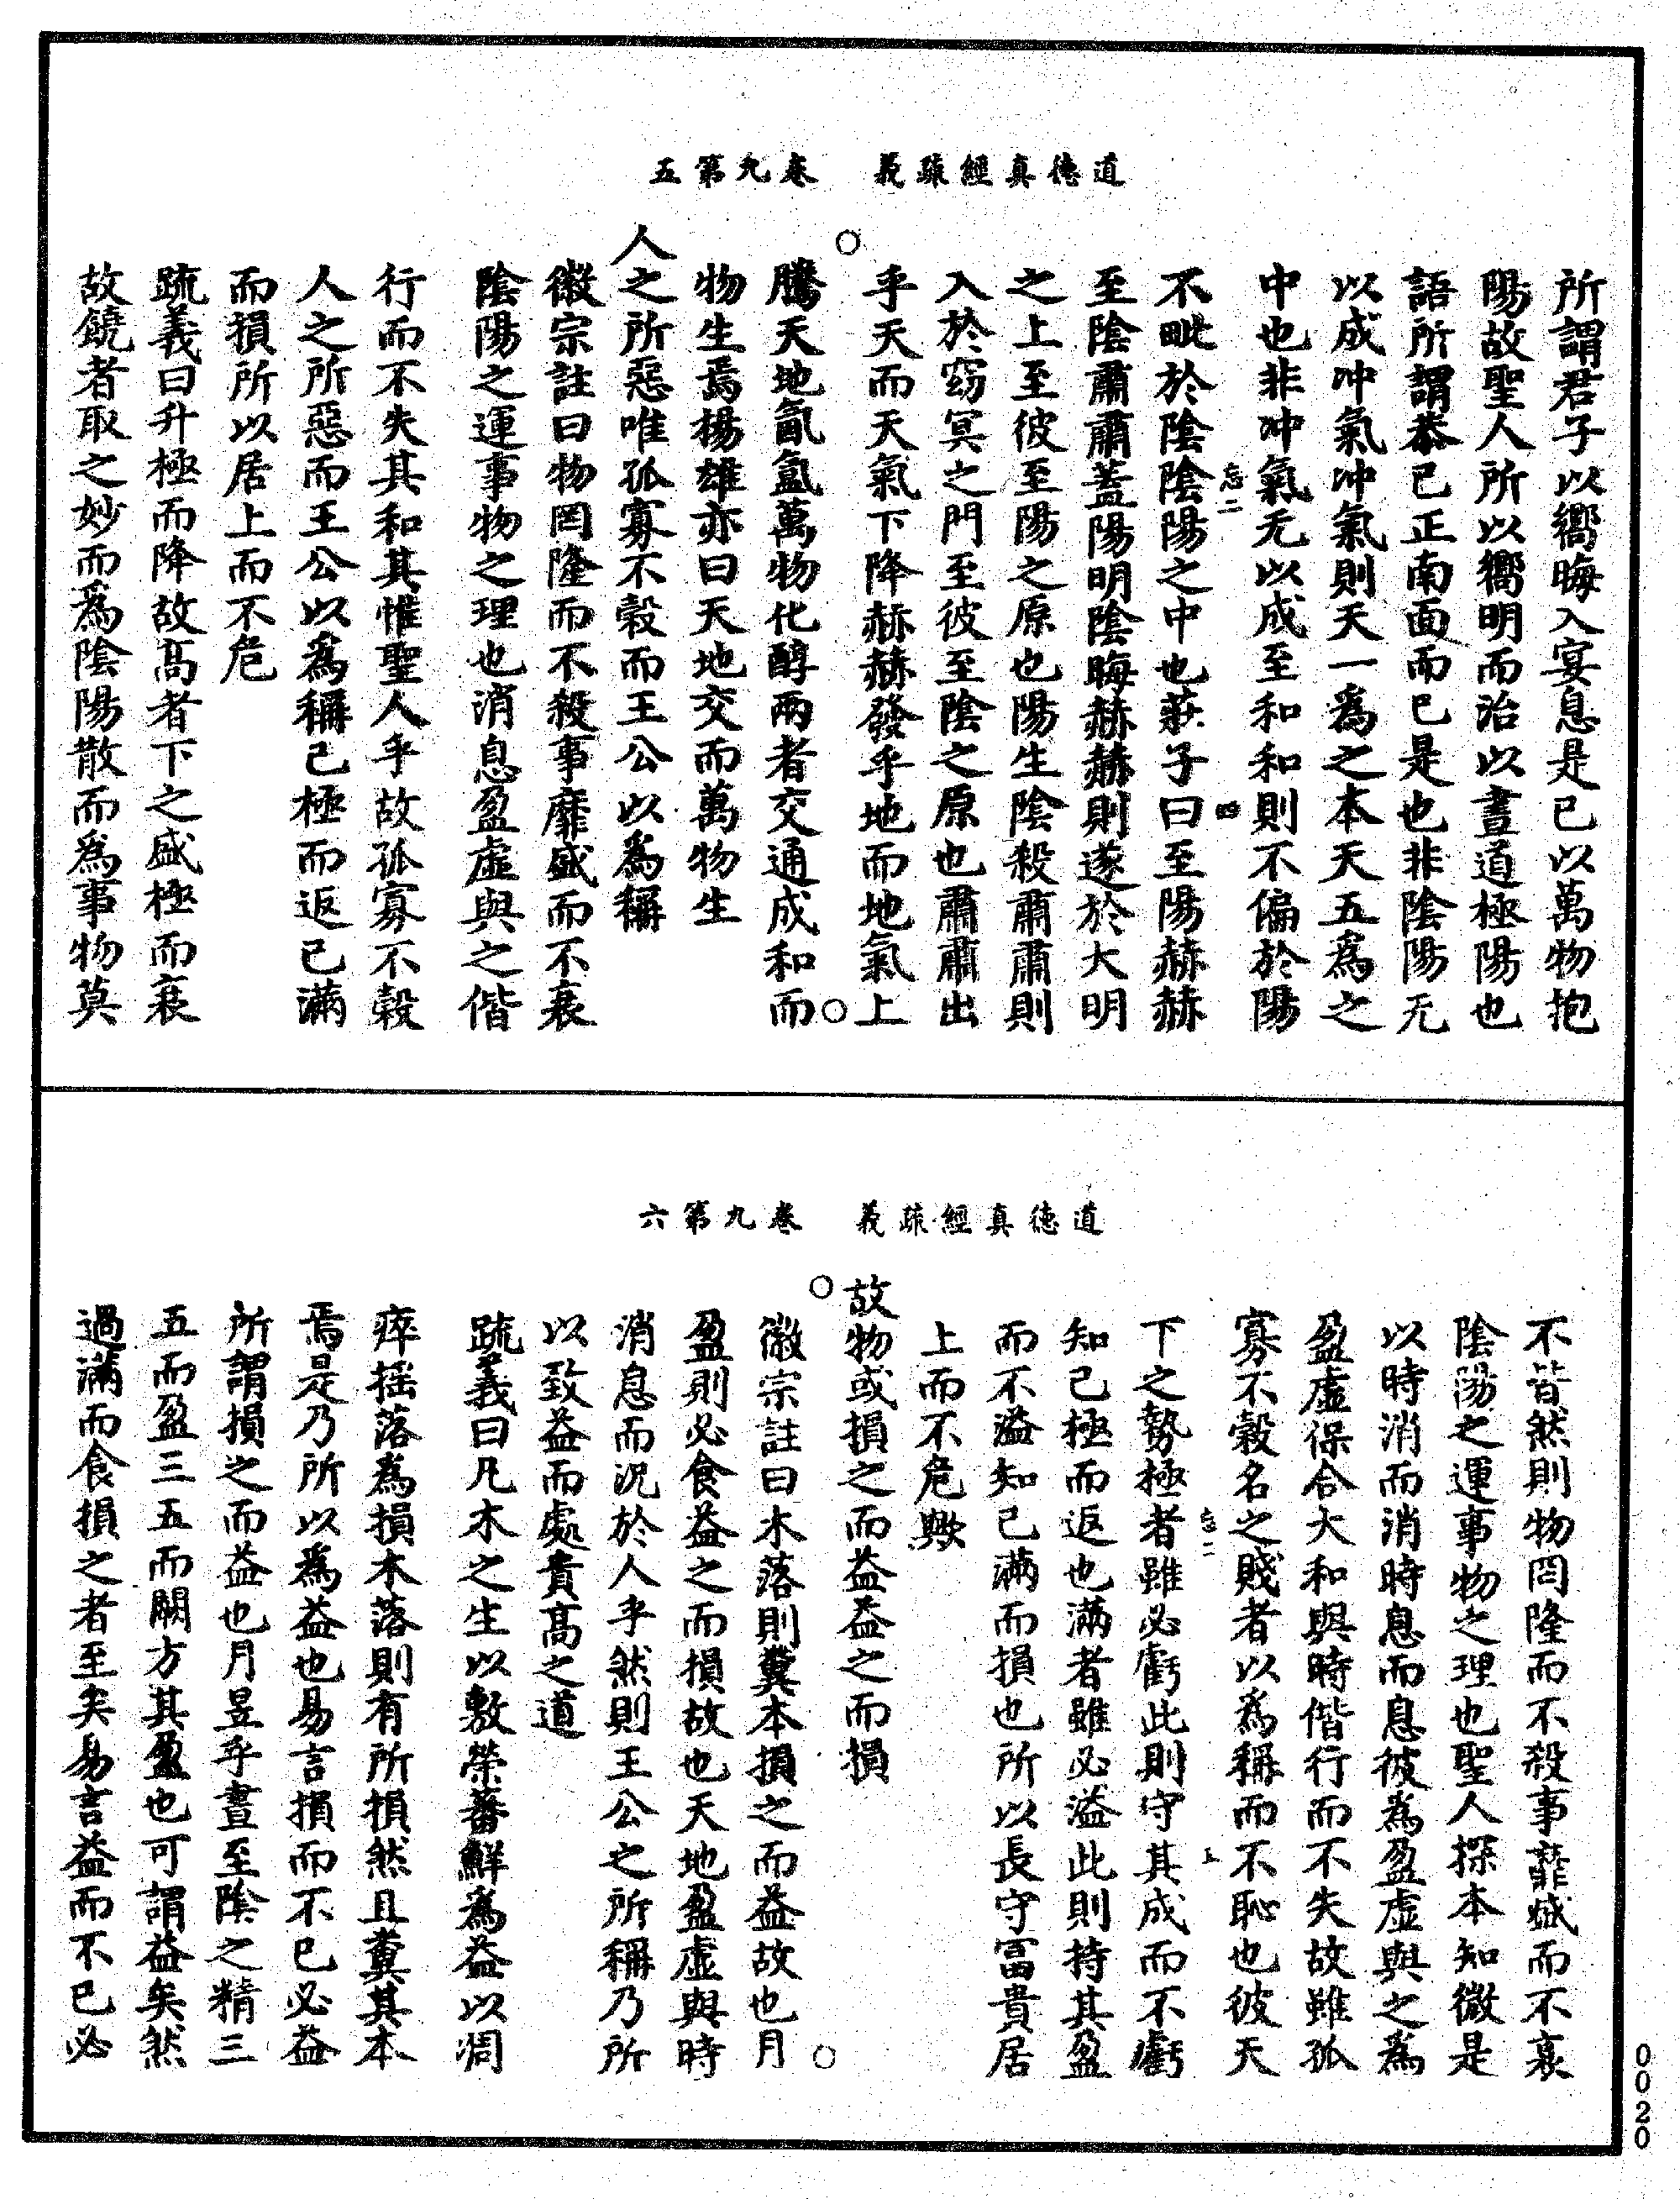 道德真經疏義　卷九第五
所謂君子以嚮晦入宴息是已以萬物抱
陽故聖人所以嚮明而治以晝道極陽也
語所謂恭己正南面而已是也非陰陽无
以成冲氣冲氣則天一為之本天五為之
中也非冲氣无以成至和和則不偏於陽
忘二 四
不毗於陰陰陽之中也莊子曰至陽赫赫
至陰肅肅蓋陽明陰晦赫赫則遂於大明
之上至彼至陽之原也陽生陰殺肅肅則
入於窈冥之門至彼至陰之原也肅肅出
乎天而天氣下降赫赫發乎地而地氣上
○ ○
騰天地氤氳萬物化醇兩者交通成和而
物生焉楊雄亦曰天地交而萬物生
人之所惡唯孤寡不穀而王公以為稱
徽宗註曰物罔隆而不殺事靡盛而不衰
陰陽之運事物之理也消息盈虛與之偕
行而不失其和其惟聖人乎故孤寡不穀
人之所惡而王公以為稱己極而返已滿
而損所以居上而不危
疏義曰升極而降故高者下之盛極而衰
故饒者取之妙而為陰陽散而為事物莫
道德真經疏義　卷九第六
不皆然則物罔隆而不殺事靡盛而不衰
陰陽之運事物之理也聖人探本知微是
以時消而消時息而息彼為盈虛與之為
盈虛保合大和與時偕行而不失故雖孤
寡不穀名之賤者以為稱而不恥也彼天
忘二 五
下之勢極者雖必虧此則守其成而不虧
知己極而返也滿者雖必溢此則持其盈
而不溢知已滿而損也所以長守富貴居
上而不危歟
故物或損之而益益之而損
○ ○
徽宗註曰木落則糞本損之而益故也月
盈則必食益之而損故也天地盈虛與時
消息而況於人乎然則王公之所稱乃所
以致益而處貴高之道
疏義曰凡木之生以敷榮蕃鮮為益以凋
瘁摇落為損木落則有所損然且糞其本
焉是乃所以為益也易言損而不已必益
所謂損之而益也月昱乎晝至陰之精三
五而盈三五而闕方其盈也可謂益矣然
過滿而食損之者至矣易言益而不已必
0020